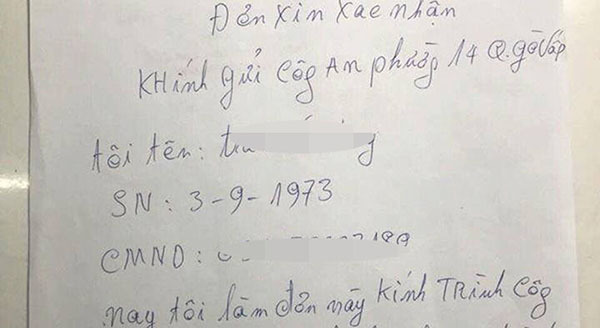 Đơn xin xac nhận
KHính gửi Côg An phườg 14 Q.gòVấp
tôi tên:
SN: 3-9-1973
CMND:
nay tôi làm đơn này Kính TRình Côg